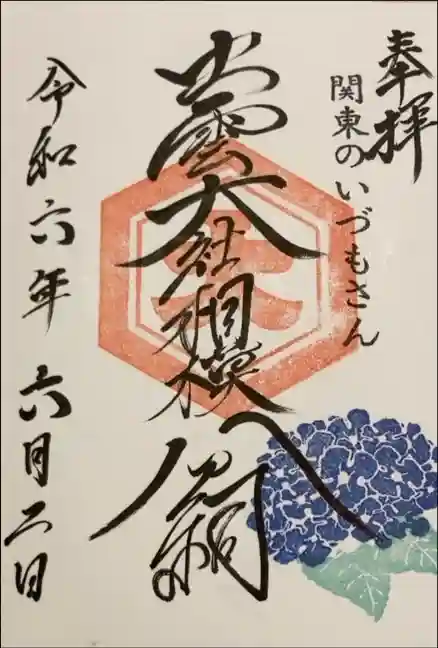 奉拝
関東のいづもさん
出雲大社相模分祠
令和六年 六月二日